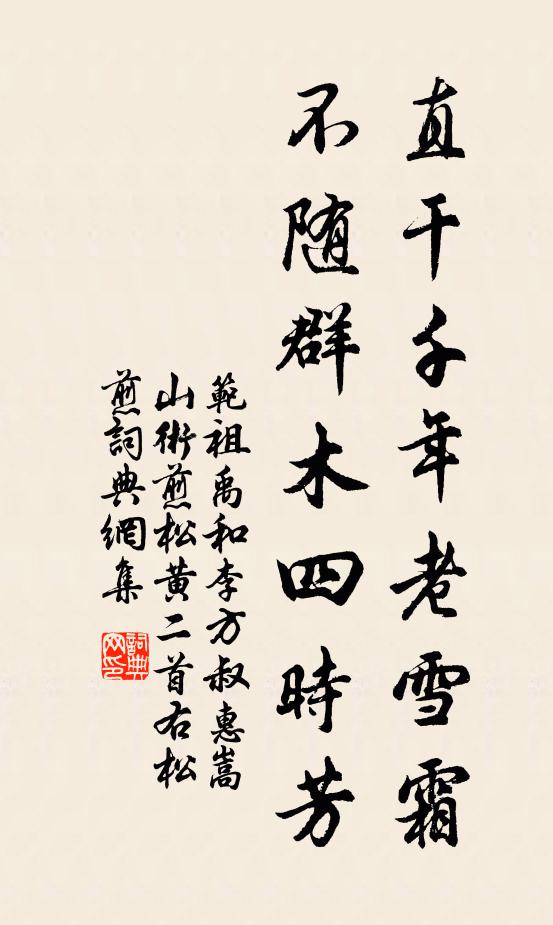 直干千年老雪霜
不随群木四時芳
範祖禹和李方叔惠嵩
山術煎松黄二首右松
煎詞典網集
詞典网印